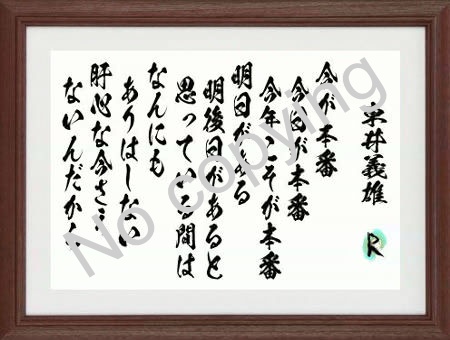 東井義雄
R
今が本番
今日が本番
今年こそが本番
明日がある
明後日があると
思っている間は
なんにも
ありはしない
肝心な今さえ
ないんだから
No copying